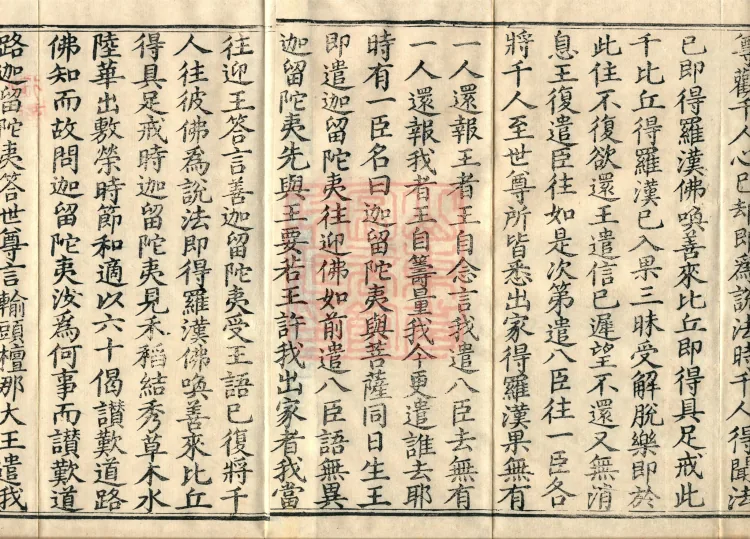 尊觀千人心已却即為說法時千人得聞法
已即得羅漢佛喚善來比丘即得具足戒此
千比丘得羅漢已入果三昧受解脫樂即於
此住不復欲還王遣信已遲望不還又無消
息王復遣臣往如是次第遣八臣往一臣各
將千人至世尊所皆悉出家得羅漢果無有
一人還報王者王自念言我遣八臣去無有
一人還報我者王自籌量我今更遣誰去耶
時有一臣名曰迦留陀夷與菩薩同日生王
即遣迦留陀夷往迎佛如前遣八臣語無異
迦留陀夷先與王要若王許我出家者我當
往迎王答言善迦留陀夷受王語已復將千
人往彼佛為說法即得羅漢佛喚善來比丘
得具足戒時迦留陀夷見禾稻結秀草木水
陸華出敷榮時節和適以六十偈讃歎道路
佛知而故問迦留陀夷汝為何事而讃歎道
路迦留陀夷答世尊言輸頭檀那大王遣我